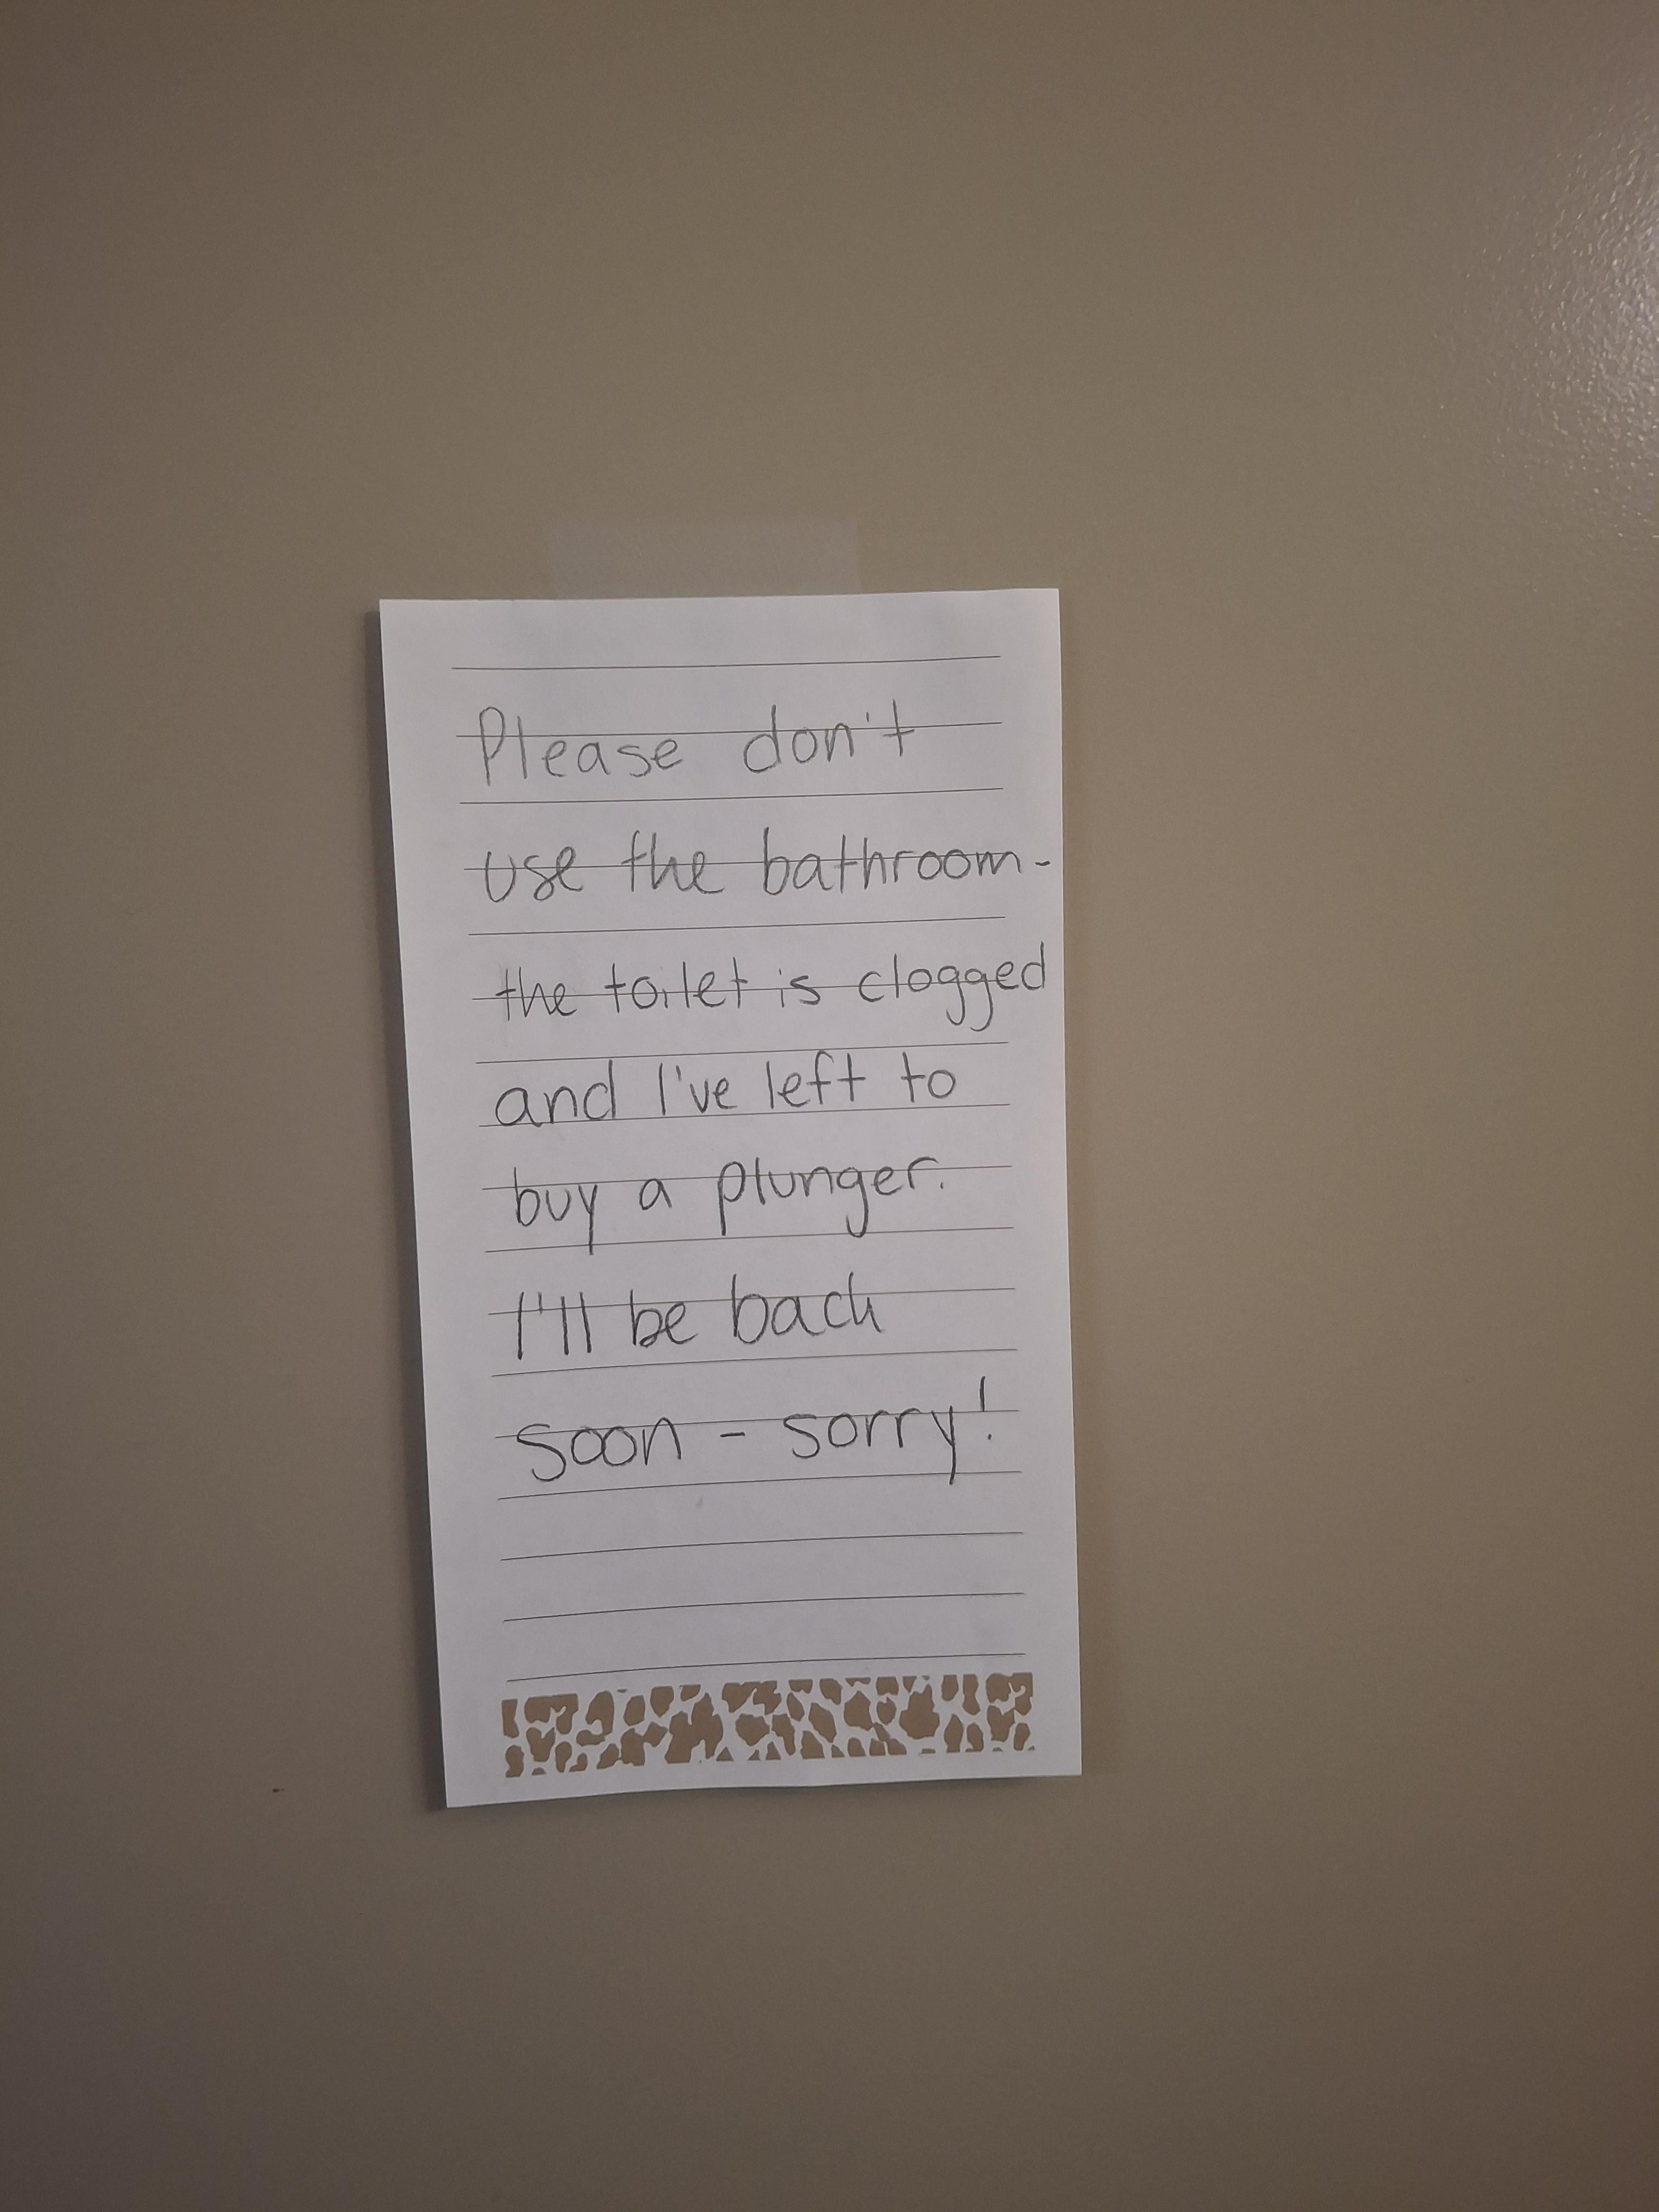 Please don't
use the bathroom -
the toilet is clogged
and I've left to
buy a plunger.
I'll be back
soon - sorry!